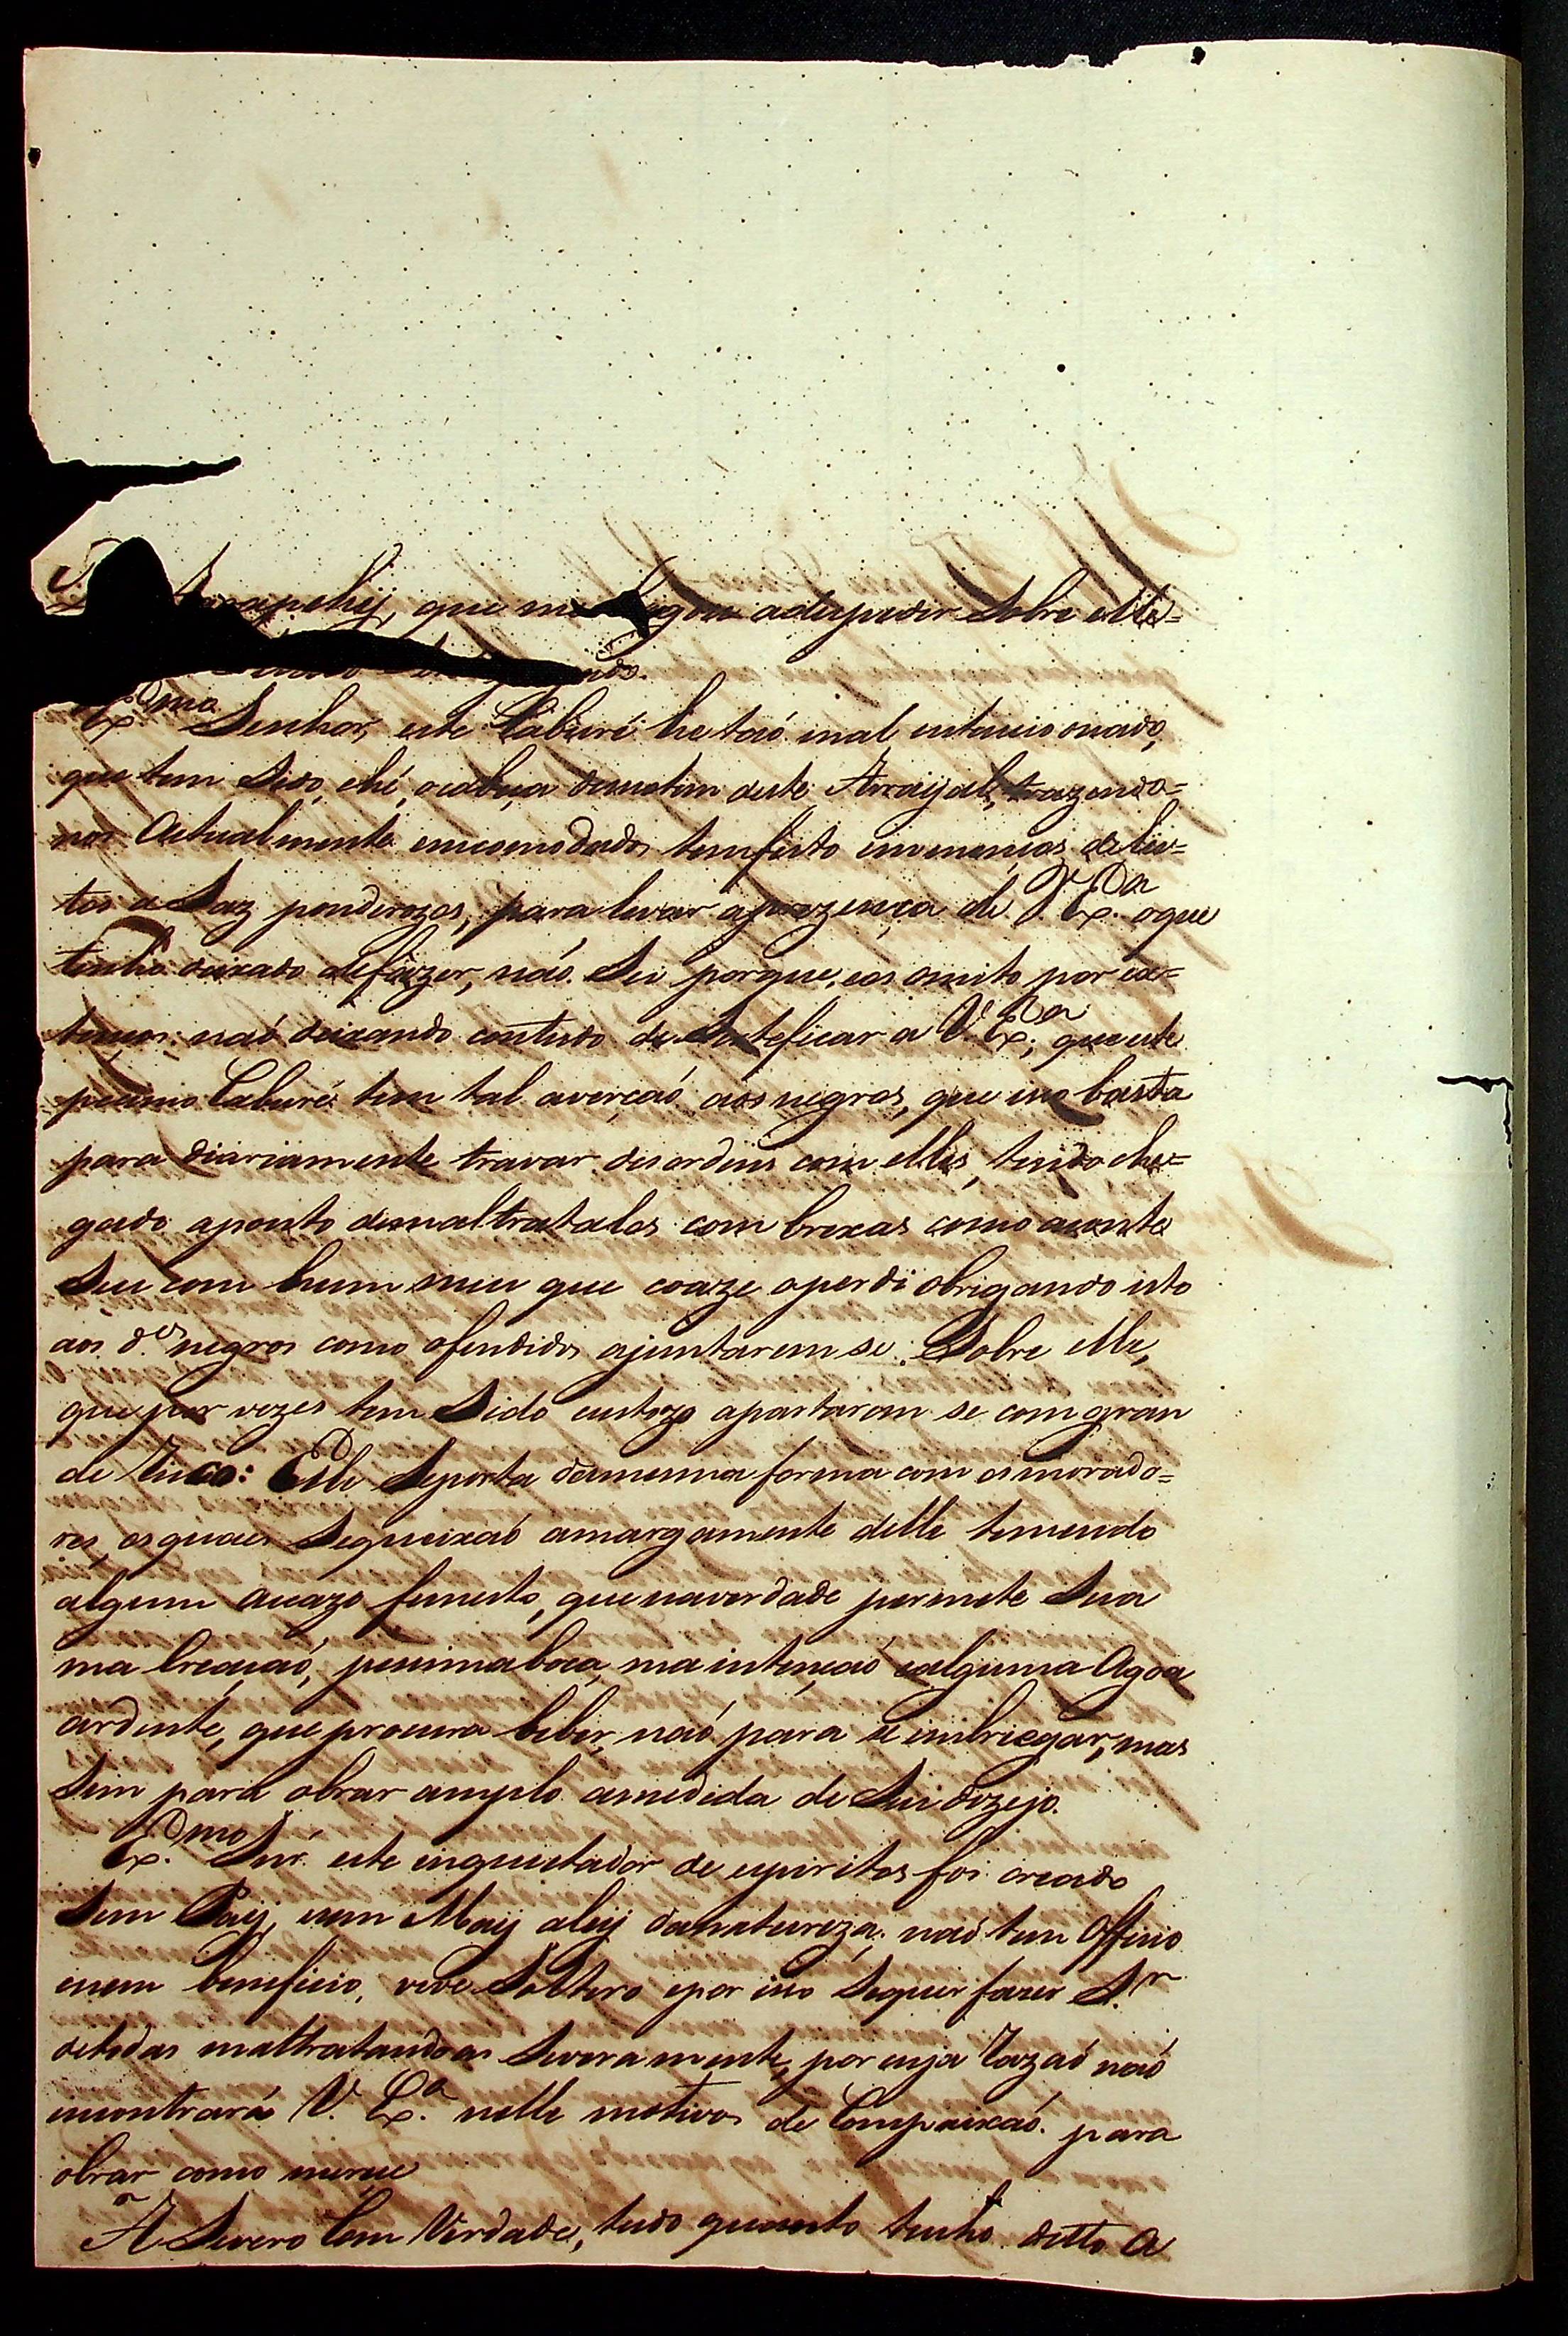 que me adespedir Sobre elle=
Ex.mo Senhor, este Caburé he taó mal intencionado,
que tem Sido, ehé, acabeça demotim deste Arrayal, trazendo=
nos Actualmente emcomodados, tem feito inmenços delic=
tos a Saz ponderozos, para levar aprezença de V. Ex.a oque
tenho deixado defazer, naó Sei porque, eos omito por ex=
tenços: naó deixando contudo de Serteficar a V. Ex.a, que este
pecimo Caburé tem tal averçaó aos negros, que isso basta
para diariamente travar disordens com elles, tendo che=
gado aponto demaltratalos com broxas como aconte
Seu com hum meu que coaze operdi obrigando isto
aos d.os negros como ofendidos ajuntarem se Sobre elle,
que por vezes tem Sido custozo apartarem se com gran
de risco: Elle Seporta damesma forma com os morado=
res, osquaes Sequeixaó amargamente delle temendo
algum acazo funesto, que naverdade permete Sua
ma Creaçaó, pessimaboca, ma intençaó ealguma Agoa
ardente, que procura beber, naó para se imbriegar, mas
Sim para obrar amplo amedida de Seu dezejo.
Ex.mo Snr. este inquietador de espiritos foi creado
Sem Pay, nem May aley danatureza, naó tem Officio
enem beneficio, vive Solteiro epor isso Sequer fazer S.r
detodas maltratandoas Severamente, por cuja razaó naó
encontrará V. Ex.a nelle motivos de Compaixaó para
obrar como merece
A Severo Com Verdade, tudo quanto tenho ditto a